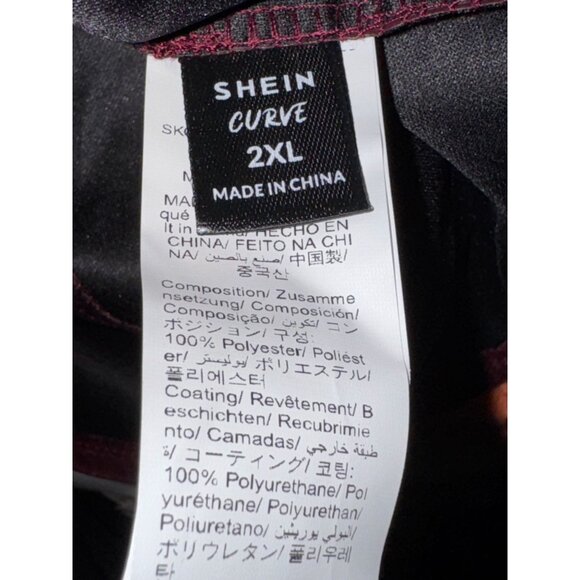 SHEIN
CURVE
2XL
MADE IN CHINA
SK
M
MA
qué
It in HECHO EN
CHINA/ FEITO NA CHI
NA/ صنع بالصين/ 中国製/
중국산
Composition/ Zusamme
nsetzung/ Composición/
Composição/ تكوين/ コン
ポジション/ 구성:
100% Polyester/ Poliést
er/ بوليستر/ ポリエステル/
폴리에스터
Coating/ Revêtement/ B
eschichten/ Recubrimie
nto/ Camadas/ طبقة خارجي
ة/ コーティング/ 코팅:
100% Polyurethane/ Pol
yuréthane/ Polyurethan/
Poliuretano/ البولي يوريثين/
ポリウレタン/ 폴리우레
타